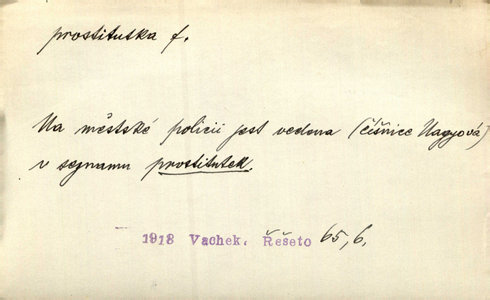 prostitutka f.
Na městské policii jest vedena (číšnice Nagyová)
v seznamu prostitutek.
1918 Vachek, Řešeto 65,6.